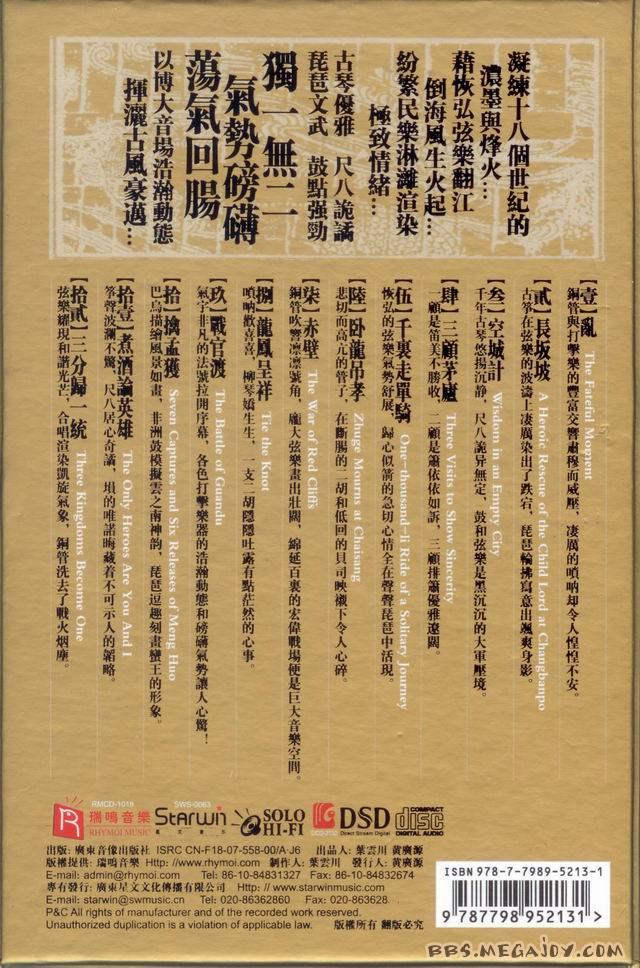 凝練十八個世紀的
濃墨與烽火…
藉恢弘弦樂翻江
倒海風生火起…
紛繁民樂淋灕渲染
極致情緒…
古琴優雅 尺八詭譎
琵琶文武 鼓點强勁
獨一無二
氣勢磅礴
蕩氣回腸
以博大音場浩瀚動態
揮灑古風豪邁…
【壹】亂 The Fateful Moment
銅管與打擊樂的豐富交響肅穆而威壓，凄厲的嗩吶却令人惶惶不安。
【貳】長坂坡 A Heroic Rescue of the Child Lord at Changbanpo
古筝在弦樂的波濤上凄厲染出了跌宕，琵琶輪拂寫意出颯爽身影。
【叁】空城計 Wisdom in an Empty City
千年古琴悠揚沉静，尺八詭异無定，鼓和弦樂是黑沉沉的大軍壓境。
【肆】三顧茅廬 Three Visits to Show Sincerity
一顧是笛美不勝收，二顧是簫依依如訴，三顧排簫優雅遼闊。
【伍】千裏走單騎 One-thousand-li Ride of a Solitary Journey
恢弘的弦樂氣勢舒展，歸心似箭的急切心情全在聲聲琵琶中活現。
【陸】卧龍吊孝 Zhuge Mourns at Chaisang
悲切而高亢的管子，在斷腸的二胡和低回的貝司映襯下令人心碎。
【柒】赤壁 The War of Red Cliffs
銅管吹響凛凛號角，龐大弦樂畫出壯闊，綿延百裏的宏偉戰場便是巨大音樂空間。
【捌】龍鳳呈祥 Tie the Knot
嗩吶歡喜喜，柳琴嬌生生，一支二胡隱隱吐露有點茫然的心事。
【玖】戰官渡 The Battle of Guandu
氣宇非凡的法號拉開序幕，各色打擊樂器的浩瀚動態和磅礴氣勢讓人心驚！
【拾】擒孟獲 Seven Captures and Six Releases of Meng Huo
巴烏描繪風景如畫，非洲鼓模擬雲之南神韵，琵琶逗趣刻畫蠻王的形象。
【拾壹】煮酒論英雄 The Only Heroes Are You And I
筝聲波瀾不驚，尺八居心奇譎，塤的唯諾晦藏着不可示人的韜略。
【拾貳】三分歸一統 Three Kingdoms Become One
弦樂耀現和諧光芒，合唱渲染凱旋氣象，銅管洗去了戰火烟塵。
RMCD-1019
瑞鳴音樂
RHYMOI MUSIC
SWS-0063
Starwin
星文音樂
SOLO
HI-FI
DSD
Direct Stream Digital
COMPACT
disc
DIGITAL AUDIO
出版: 廣東音像出版社 ISRC CN-F18-07-558-00/A·J6 出品人: 葉雲川 黄廣源
版權提供: 瑞鳴音樂 Http://www.rhymoi.com 制作人: 葉雲川 發行人: 黄廣源
E-mail: admin@rhymoi.com Tel: 86-10-84831327 Fax: 86-10-84832674
專有發行: 廣東星文文化傳播有限公司 Http://www.starwinmusic.com
E-mail: starwin@swmusic.cn Tel: 020-86362860 Fax: 020-863628
P&C All rights of manufacturer and of the recorded work reserved.
Unauthorized duplication is a violation of applicable law. 版權所有 翻版必究
ISBN 978-7-7989-5213-1
9 787798 952131
BBS.MEGAJOY.COM